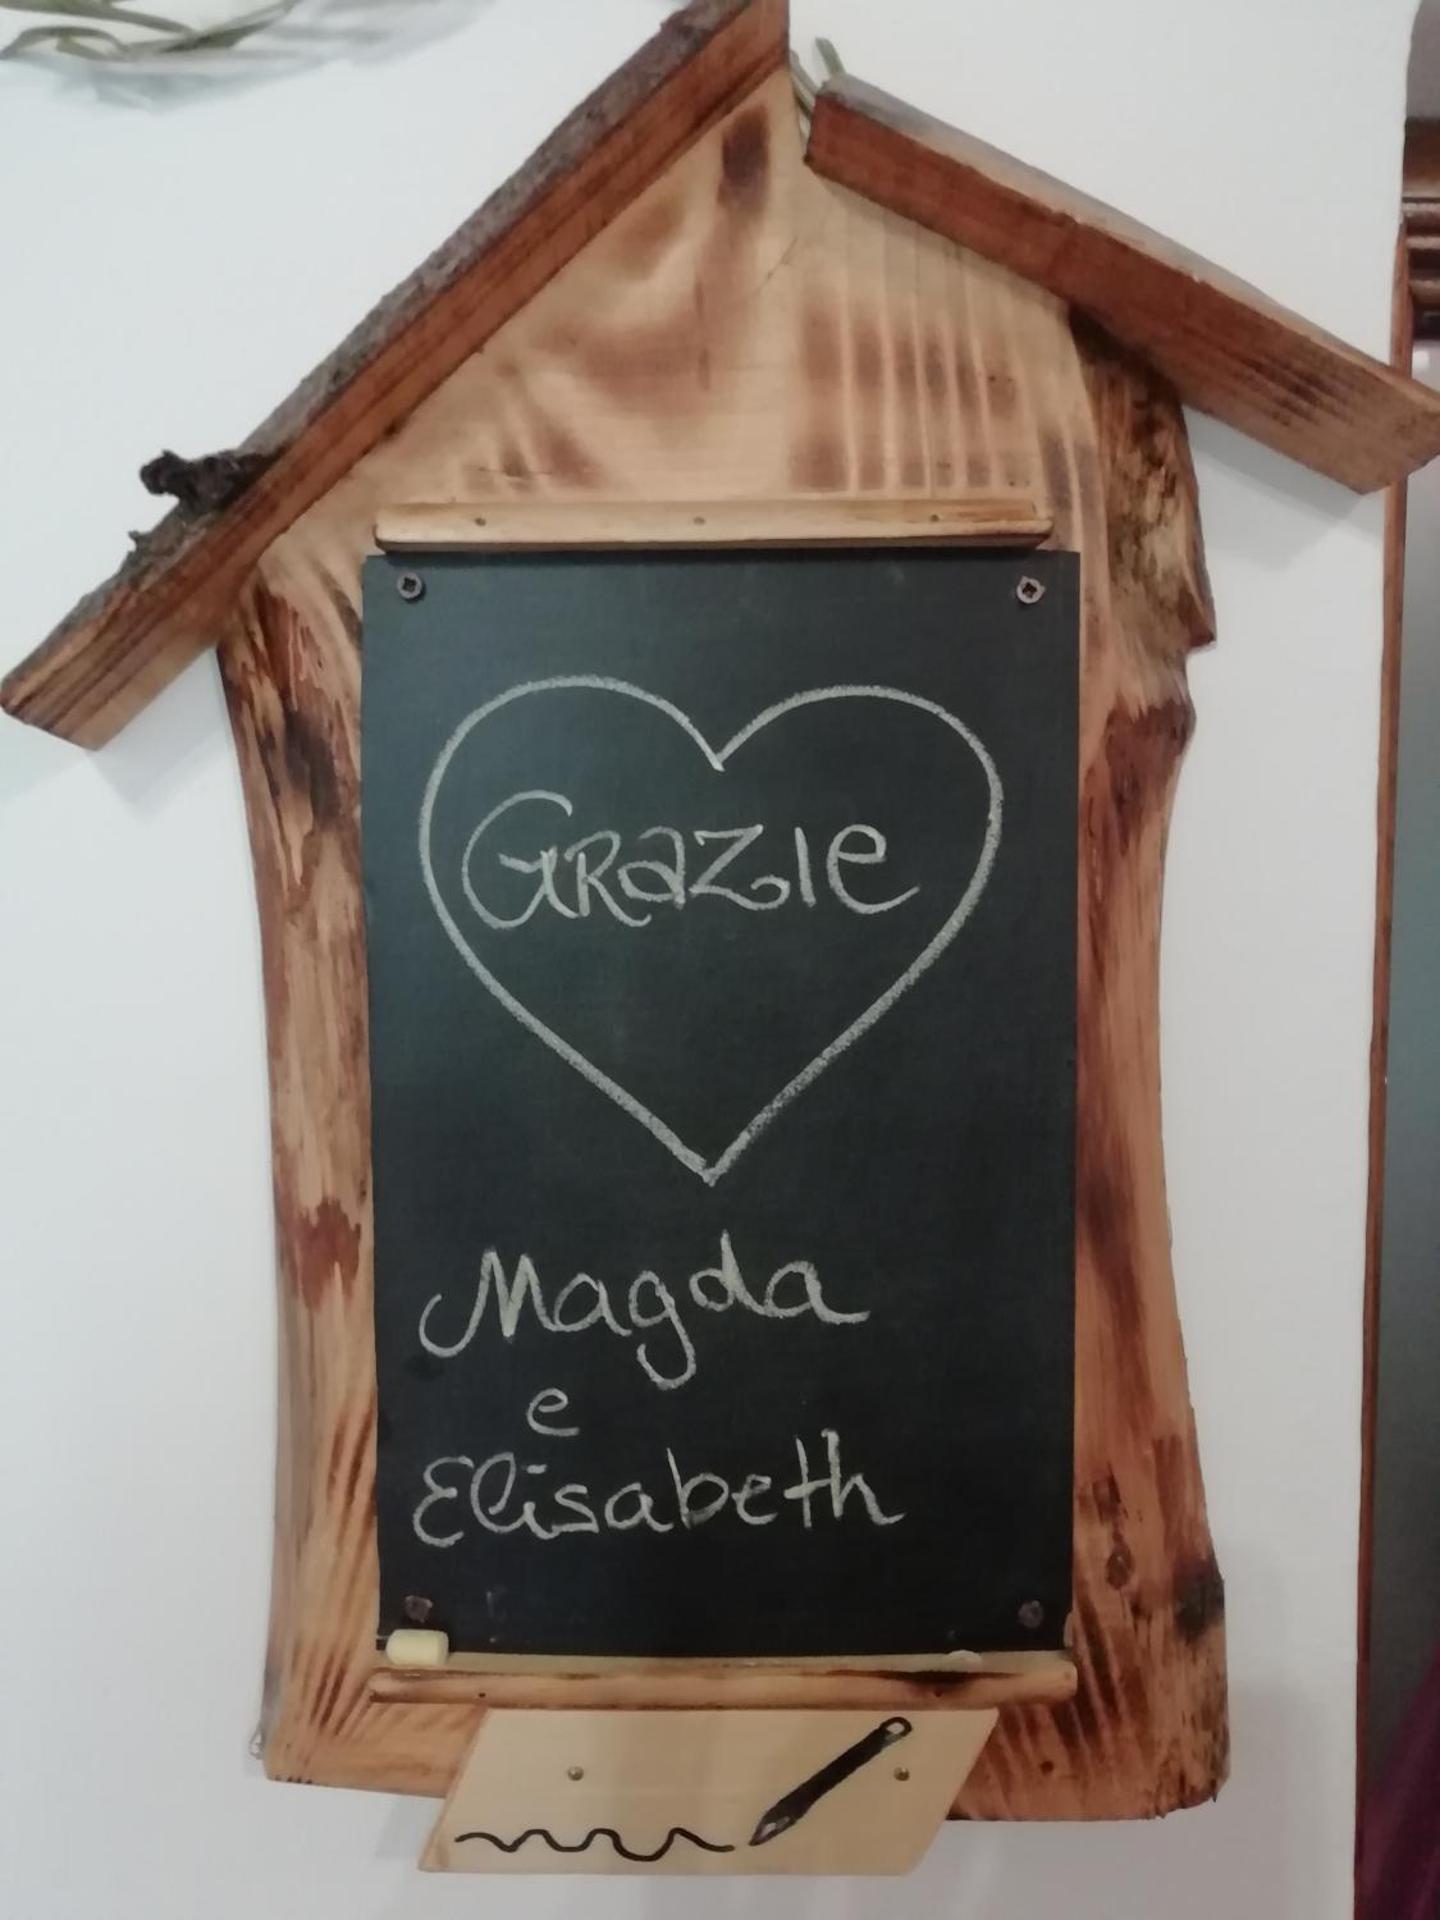 GRaZIe
Magda
e
Elisabeth